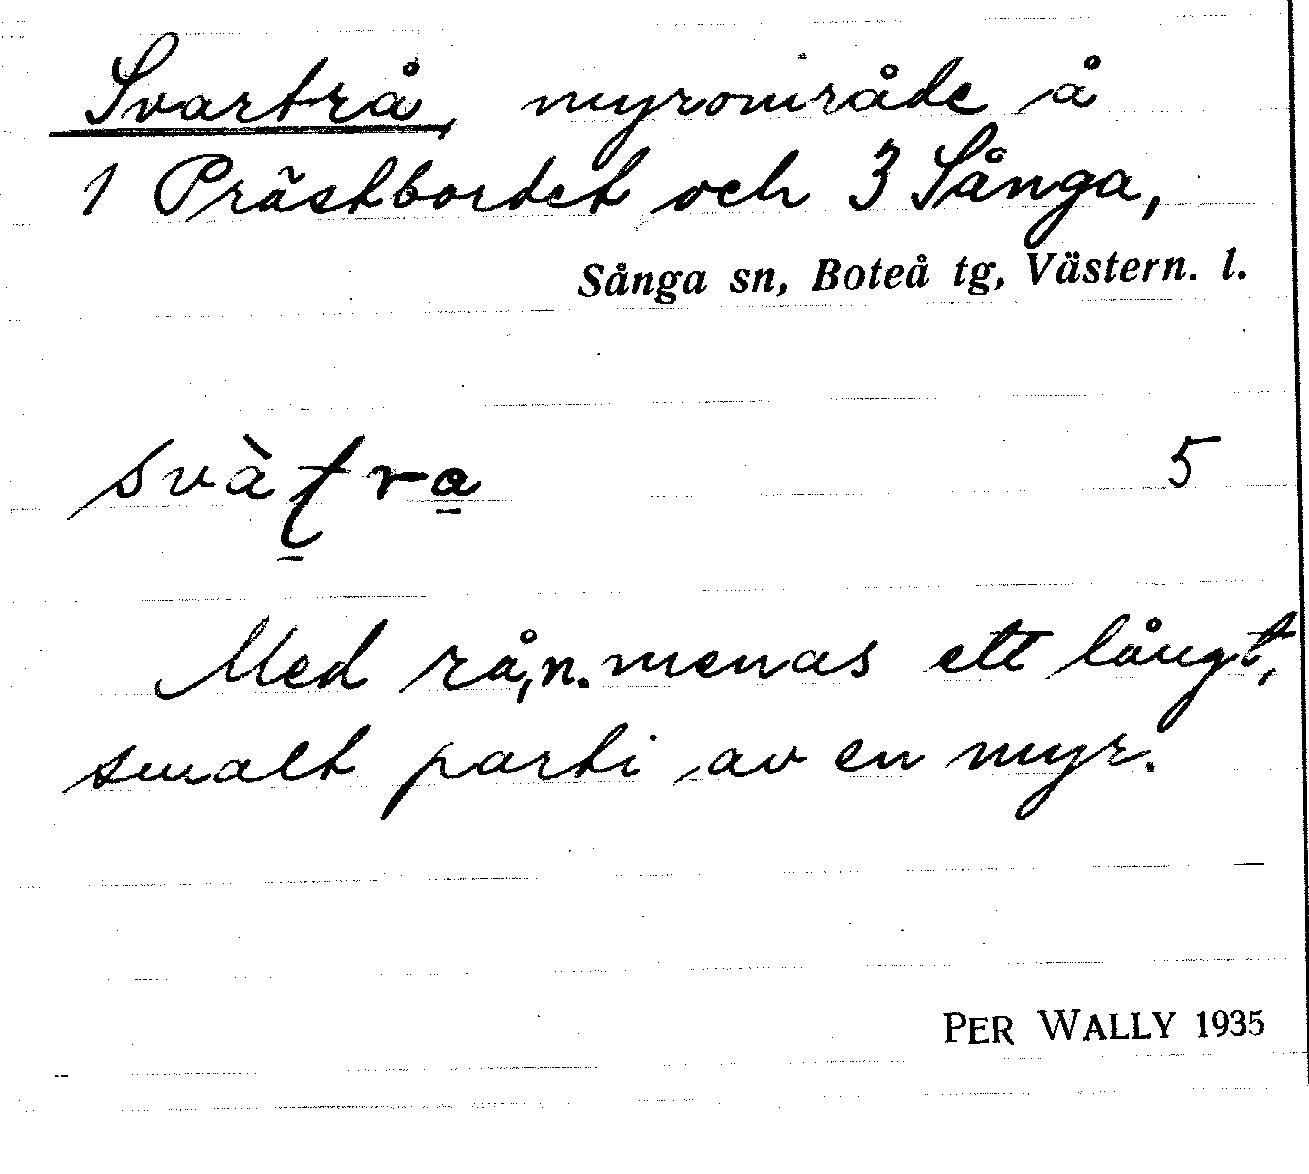 Svartrå, myrområde å
1 Prästbordet och 3 Sånga,
Sånga sn, Boteå tg, Västern. l.
svàʈra̲ 5
Med rå, n. menas ett långt,
smalt parti av en myr.
PER WALLY 1935